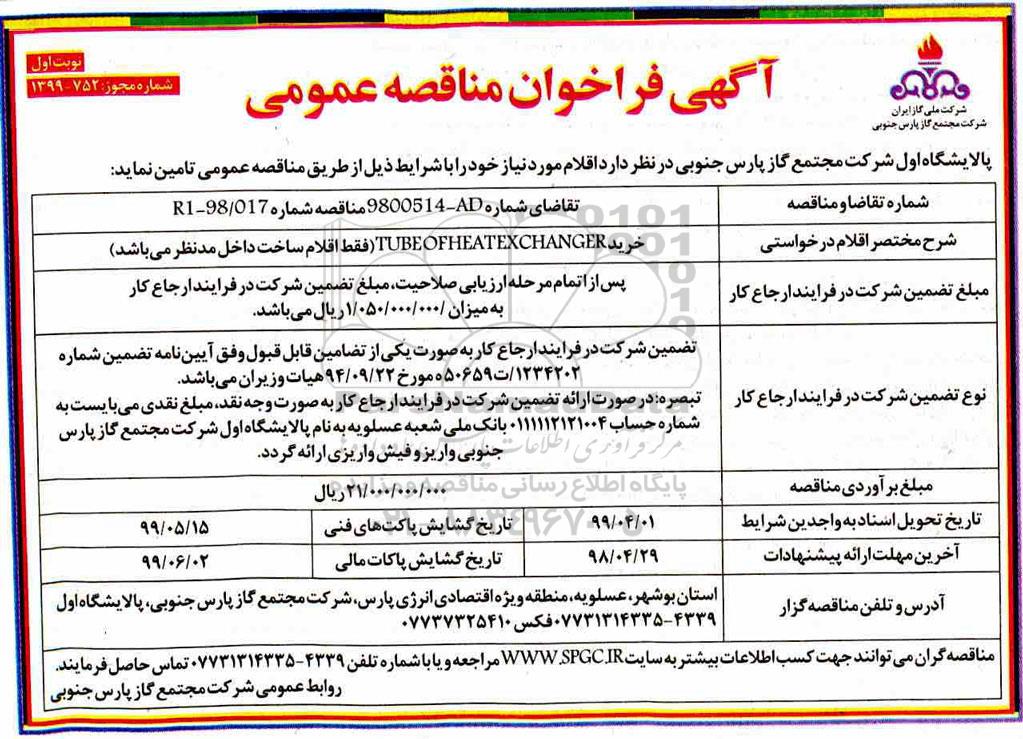 شرکت ملی گاز ایران
شرکت مجتمع گاز پارس جنوبی
آگهی فراخوان مناقصه عمومی
نوبت اول
شماره مجوز: ۷۵۲-۱۳۹۹
پالایشگاه اول شرکت مجتمع گاز پارس جنوبی در نظر دارد اقلام مورد نیاز خود را با شرایط ذیل از طریق مناقصه عمومی تامین نماید:
شماره تقاضا و مناقصه
تقاضای شماره 9800514-AD مناقصه شماره R1-98/017
شرح مختصر اقلام درخواستی
خرید TUBE OF HEAT EXCHANGER (فقط اقلام ساخت داخل مدنظر می‌باشد)
مبلغ تضمین شرکت در فرایند ارجاع کار
پس از اتمام مرحله ارزیابی صلاحیت، مبلغ تضمین شرکت در فرایند ارجاع کار
به میزان /۱/۰۵۰/۰۰۰/۰۰۰ ریال می‌باشد.
نوع تضمین شرکت در فرایند ارجاع کار
تضمین شرکت در فرایند ارجاع کار به صورت یکی از تضامین قابل قبول وفق آیین‌نامه تضمین شماره
۱۲۳۴۰۲/ت۵۰۶۵۹ه مورخ ۹۴/۰۹/۲۲ هیات وزیران می‌باشد.
تبصره: در صورت ارائه تضمین شرکت در فرایند ارجاع کار به صورت وجه نقد، مبلغ نقدی می‌بایست به
شماره حساب ۰۱۱۱۱۱۲۱۲۱۰۰۴ بانک ملی شعبه عسلویه به نام پالایشگاه اول شرکت مجتمع گاز پارس
جنوبی واریز و فیش واریزی ارائه گردد.
مبلغ برآوردی مناقصه
۲۱/۰۰۰/۰۰۰/۰۰۰ ریال
تاریخ تحویل اسناد به واجدین شرایط
۹۹/۰۴/۰۱
تاریخ گشایش پاکت‌های فنی
۹۹/۰۵/۱۵
آخرین مهلت ارائه پیشنهادات
۹۸/۰۴/۲۹
تاریخ گشایش پاکات مالی
۹۹/۰۶/۰۲
آدرس و تلفن مناقصه‌گزار
استان بوشهر، عسلویه، منطقه ویژه اقتصادی انرژی پارس، شرکت مجتمع گاز پارس جنوبی، پالایشگاه اول
۰۷۷۳۱۳۱۴۳۳۵-۴۳۳۹ فکس ۰۷۷۳۷۳۲۵۴۱۰
مناقصه‌گران می‌توانند جهت کسب اطلاعات بیشتر به سایت WWW.SPGC.IR مراجعه و یا با شماره تلفن ۴۳۳۹-۰۷۷۳۱۳۱۴۳۳۵ تماس حاصل فرمایند.
روابط عمومی شرکت مجتمع گاز پارس جنوبی
پایگاه اطلاع رسانی مناقصه و مزایده